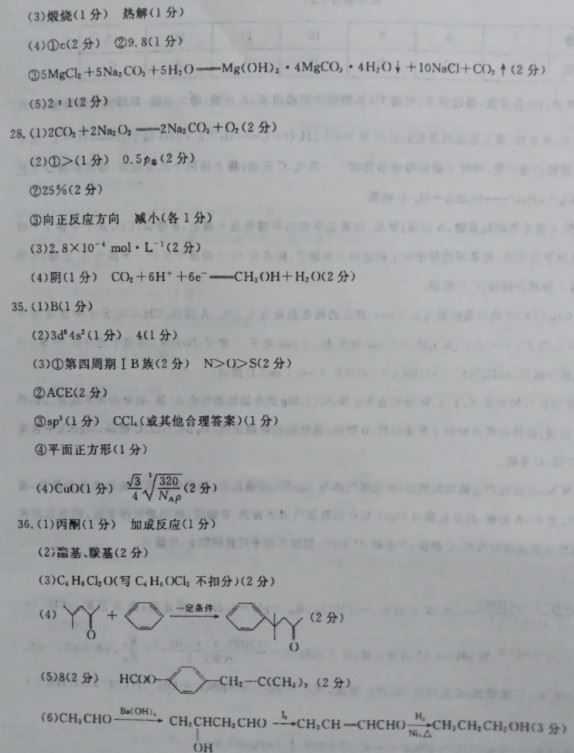 (3)煅烧(1分) 热解(1分)
(4)①c(2分) ②9.8(1分)
③5MgCl₂+5Na₂CO₃+5H₂O══Mg(OH)₂·4MgCO₃·4H₂O↓+10NaCl+CO₂↑(2分)
(5)2:1(2分)
28.(1)2CO₂+2Na₂O₂══2Na₂CO₃+O₂(2分)
(2)①>(1分) 0.5p总(2分)
②25%(2分)
③向正反应方向 减小(各1分)
(3)2.8×10⁻⁴ mol·L⁻¹(2分)
(4)阴(1分) CO₂+6H⁺+6e⁻══CH₃OH+H₂O(2分)
35.(1)B(1分)
(2)3d⁸4s²(1分) 4(1分)
(3)①第四周期ⅠB族(2分) N>O>S(2分)
②ACE(2分)
③sp³(1分) CCl₄(或其他合理答案)(1分)
④平面正方形(1分)
(4)CuO(1分) √3/4 ∛(320/N_Aρ)(2分)
36.(1)丙酮(1分) 加成反应(1分)
(2)醛基、羰基(2分)
(3)C₄H₈Cl₂O(写C₄H₈OCl₂不扣分)(2分)
(4) O + 一定条件 O (2分)
(5)8(2分) HCOO— —CH₂—C(CH₃)₃ (2分)
(6)CH₃CHO Ba(OH)₂ CH₃CHCH₂CHO CH₃CH═CHCHO H₂ Ni,△ CH₃CH₂CH₂CH₂OH(3分)
OH